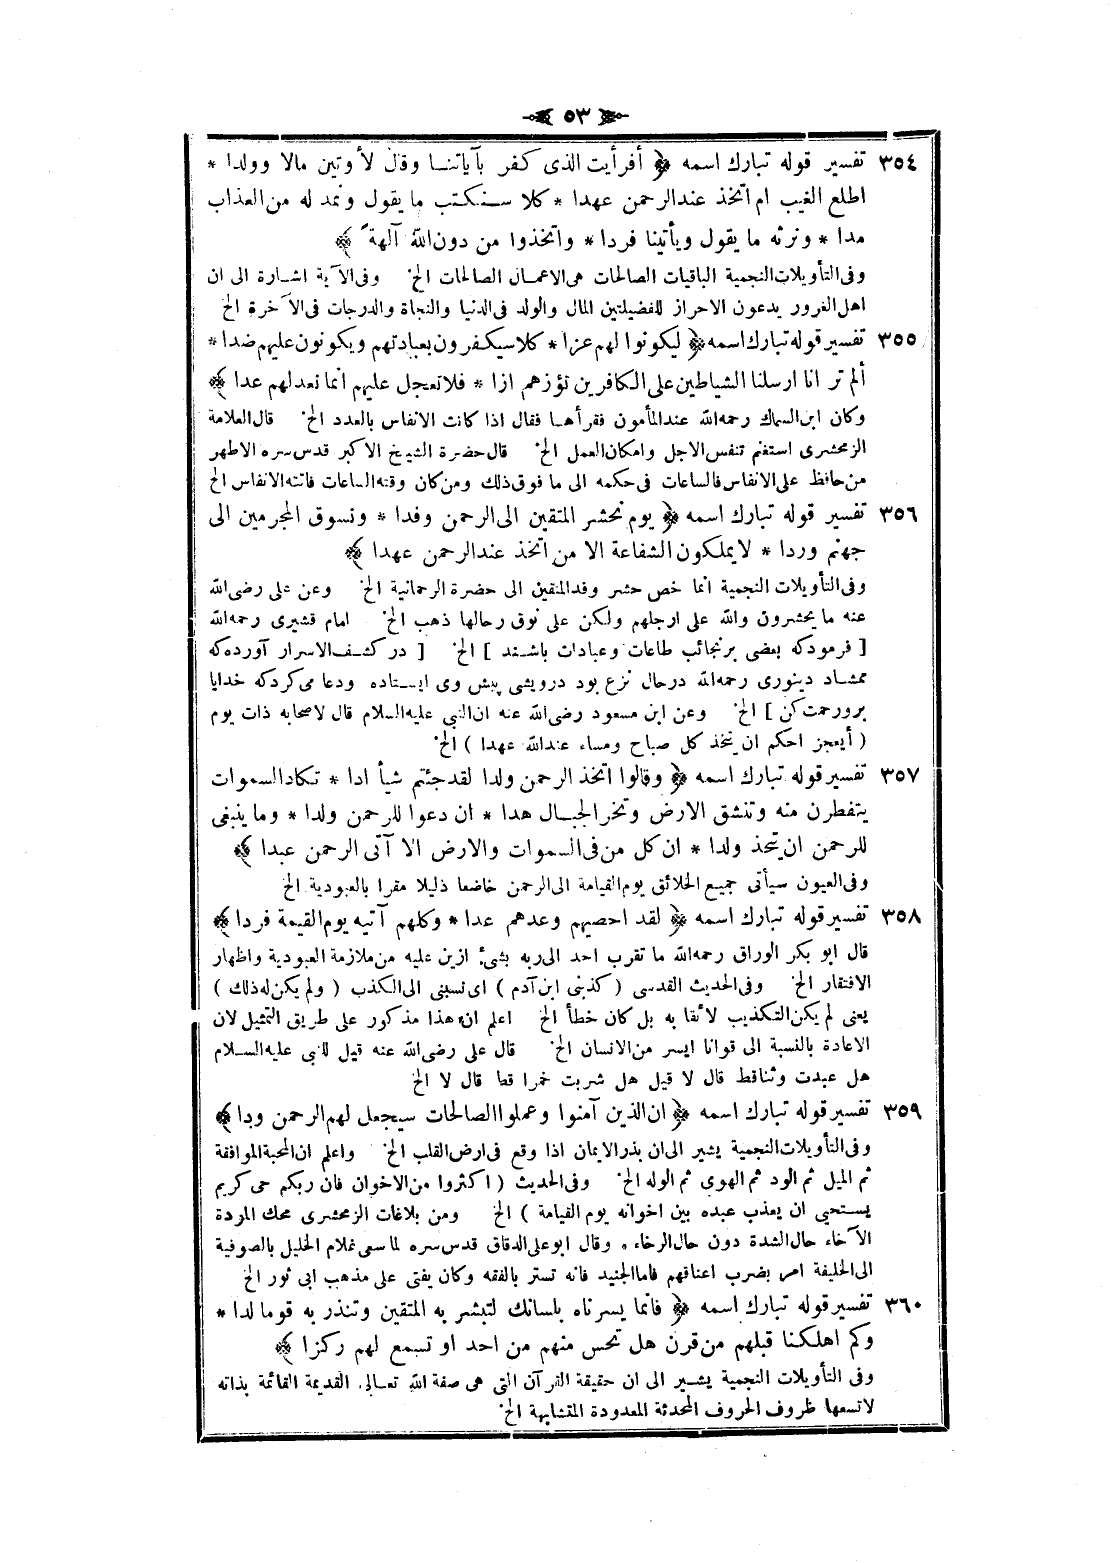 ٥٣
٣٥٤ تفسير قوله تبارك اسمه ﴿ أفرأيت الذى كفر بآياتنا وقال لأوتين مالا وولدا *
اطلع الغيب ام اتخذ عندالرحمن عهدا * كلا سنكتب مايقول ونمد له من العذاب
مدا * ونرثه مايقول ويأتينا فردا * واتخذوا من دون الله آلهة ﴾
وفى التأويلات النجمية الباقيات الصالحات هى الاعمال الصالحات الخ وفى الآية اشارة الى ان
اهل الغرور يدعون الاحراز للفضيلتين المال والولد فى الدنيا والنجاة والدرجات فى الآخرة الخ
٣٥٥ تفسير قوله تبارك اسمه ﴿ ليكونوا لهم عزا * كلا سيكفرون بعبادتهم ويكونون عليهم ضدا *
ألم تر انا ارسلنا الشياطين على الكافرين تؤزهم ازا * فلا تعجل عليهم انما نعدلهم عدا ﴾
وكان ابن السماك رحمه الله عند المأمون فقرأها فقال اذا كانت الانفاس بالعدد الخ قال العلامة
الزمخشرى استغنم تنفس الاجل وامكان العمل الخ قال حضرة الشيخ الاكبر قدس سره الاطهر
من حافظ على الانفاس فالساعات فى حكمه الى ما فوق ذلك ومن كان وقته الساعات فاتته الانفاس الخ
٣٥٦ تفسير قوله تبارك اسمه ﴿ يوم نحشر المتقين الى الرحمن وفدا * ونسوق المجرمين الى
جهنم وردا * لايملكون الشفاعة الا من اتخذ عندالرحمن عهدا ﴾
وفى التأويلات النجمية انما خص حشر وفد المتقين الى حضرة الرحمانية الخ وعن على رضى الله
عنه ما يحشرون والله على ارجلهم ولكن على نوق رحالها ذهب الخ امام قشيرى رحمه الله
[ فرمودكه بعضى برنجائب طاعات وعبادات باشند ] الخ [ در كشف الاسرار آورده كه
ممشاد دينورى رحمه الله درحال نزع بود درويشى پيش وى ايستاده ودعا مى كردكه خدايا
برو رحمت كن ] الخ وعن ابن مسعود رضى الله عنه ان النبى عليه السلام قال لاصحابه ذات يوم
( أيعجز احكم ان يتخذ كل صباح ومساء عند الله عهدا ) الخ
٣٥٧ تفسير قوله تبارك اسمه ﴿ وقالوا اتخذ الرحمن ولدا لقد جئتم شيأ ادا * تكاد السموات
يتفطرن منه وتنشق الارض وتخر الجبال هدا * ان دعوا للرحمن ولدا * وما ينبغى
للرحمن ان يتخذ ولدا * ان كل من فى السموات والارض الا آتى الرحمن عبدا ﴾
وفى العيون سيأتى جميع الخلائق يوم القيامة الى الرحمن خاضعا ذليلا مقرا بالعبودية الخ
٣٥٨ تفسير قوله تبارك اسمه ﴿ لقد احصيهم وعدهم عدا * وكلهم آتيه يوم القيمة فردا ﴾
قال ابو بكر الوراق رحمه الله ما تقرب احد الى ربه بشىء ازين عليه من ملازمة العبودية واظهار
الافتقار الخ وفى الحديث القدسى ( كذبنى ابن آدم ) اى نسبنى الى الكذب ( ولم يكن له ذلك )
يعنى لم يكن التكذيب لائقا به بل كان خطأ الخ اعلم ان هذا مذكور على طريق التمثيل لان
الاعادة بالنسبة الى قوانا ايسر من الانسان الخ قال على رضى الله عنه قيل للنبى عليه السلام
هل عبدت وثنا قط قال لا قيل هل شربت خمرا قط قال لا الخ
٣٥٩ تفسير قوله تبارك اسمه ﴿ ان الذين آمنوا وعملوا الصالحات سيجعل لهم الرحمن ودا ﴾
وفى التأويلات النجمية يشير الى ان بذر الايمان اذا وقع فى ارض القلب الخ واعلم ان المحبة الموافقة
ثم الميل ثم الود ثم الهوى ثم الوله الخ وفى الحديث ( اكثروا من الاخوان فان ربكم حى كريم
يستحيى ان يعذب عبده بين اخوانه يوم القيامة ) الخ ومن بلاغات الزمخشرى محك المودة
الآخاء حال الشدة دون حال الرخاء . وقال ابو على الدقاق قدس سره لما سعى غلام الخليل بالصوفية
الى الخليفة امر بضرب اعناقهم فاما الجنيد فانه تستر بالفقه وكان يفتى على مذهب ابى ثور الخ
٣٦٠ تفسير قوله تبارك اسمه ﴿ فانما يسرناه بلسانك لتبشر به المتقين وتنذر به قوما لدا *
وكم اهلكنا قبلهم من قرن هل تحس منهم من احد او تسمع لهم ركزا ﴾
وفى التأويلات النجمية يشير الى ان حقيقة القرآن التى هى صفة الله تعالى القديمة القائمة بذاته
لا تسعها ظروف الحروف المحدثة المعدودة المتشابهة الخ